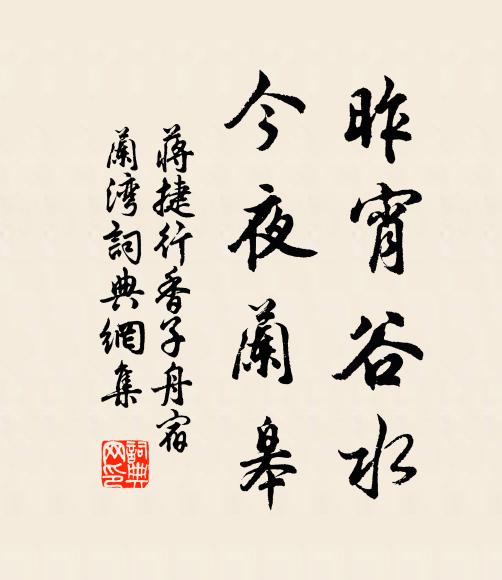 昨宵谷水
今夜蘭皋
蔣捷行香子舟宿
蘭灣詞典網集
詞典網印